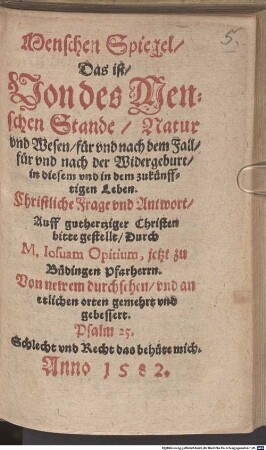 5.
Menschen Spiegel/
Das ist/
Von des Men-
schen Stande/ Natur
vnd Wesen/ für vnd nach dem Fall/
für vnd nach der Widergeburt/
in diesem vnd in dem zukünff-
tigen Leben.
Christliche Frage vnd Antwort/
Auff guthertziger Christen
bitte gestellt/ Durch
M. Iosuam Opitium, jetzt zu
Büdingen Pfarherrn.
Von newem durchsehen/ vnd an
etlichen orten gemehrt vnd
gebessert.
Psalm 25.
Schlecht vnd Recht das behüte mich.
Anno 1582.